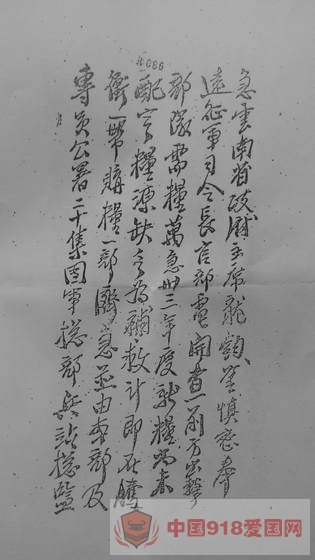 急雲南省政府主席龍鈞鑒慎密奉
遠征軍司令長官部電開查前方出擊
部隊需糧萬急卅三年度新糧尚未
配定糧源缺乏為補救計即在騰
衝一帶購糧一部濟急並由本部及
專員公署二十集團軍總部兵站總監
中国918爱国网
www.china918.net